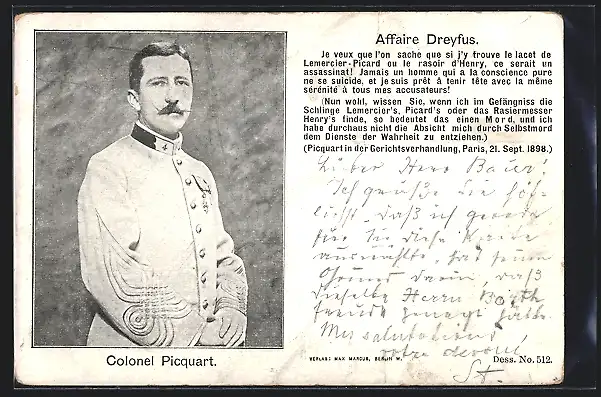 Affaire Dreyfus.
Je veux que l'on sache que si j'y trouve le lacet de
Lemercier-Picard ou le rasoir d'Henry, ce serait un
assassinat! Jamais un homme qui a la conscience pure
ne se suicide, et je suis prêt à tenir tête avec la même
sérénité à tous mes accusateurs!
(Nun wohl, wissen Sie, wenn ich im Gefängniss die
Schlinge Lemercier's, Picard's oder das Rasiermesser
Henry's finde, so bedeutet das einen Mord, und ich
habe durchaus nicht die Absicht mich durch Selbstmord
dem Dienste der Wahrheit zu entziehen.)
(Picquart in der Gerichtsverhandlung, Paris, 21. Sept. 1898.)
Lieber Herr Bauer!
Ich grüße Sie höf-
lichst, daß ich gerade
für Sie diese Karte
auswählte, hat seinen
Grund darin, daß
dieselbe Herrn
Mes salutations,
votre dévoué
St.
Colonel Picquart.
VERLAG: MAX MARCUS, BERLIN W.
Dess. No. 512.